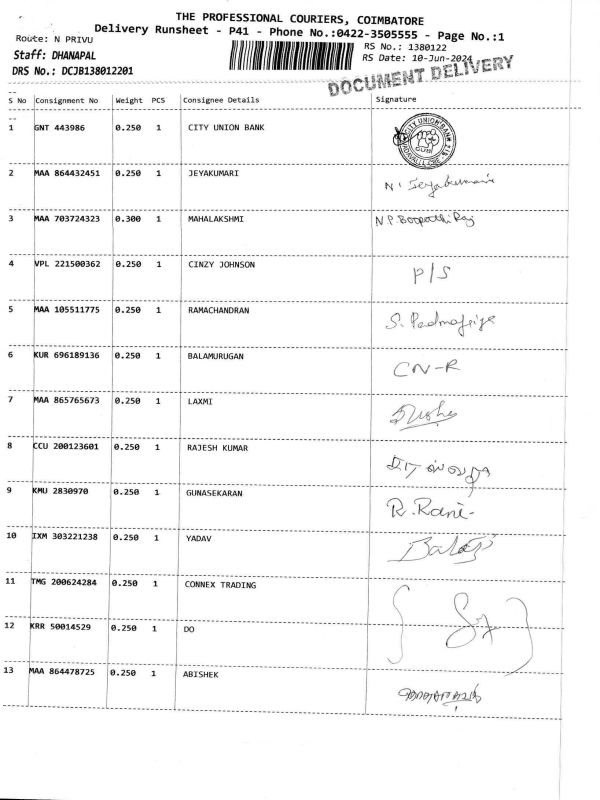 THE PROFESSIONAL COURIERS, COIMBATORE
Delivery Runsheet - P41 - Phone No.:0422-3505555 - Page No.:1
Route: N PRIVU
RS No.: 1380122
Staff: DHANAPAL
RS Date: 10-Jun-2024
DRS No.: DCJB138012201
DOCUMENT DELIVERY
S No Consignment No Weight PCS Consignee Details Signature
1 GNT 443986 0.250 1 CITY UNION BANK
CITY UNION BANK
CUB
2 MAA 864432451 0.250 1 JEYAKUMARI N. Jeyakumari
3 MAA 703724323 0.300 1 MAHALAKSHMI N.P. Boopathi Raj
4 VPL 221500362 0.250 1 CINZY JOHNSON P/S
5 MAA 105511775 0.250 1 RAMACHANDRAN S. Padmapriya
6 KUR 696189136 0.250 1 BALAMURUGAN CN-R
7 MAA 865765673 0.250 1 LAXMI
8 CCU 200123601 0.250 1 RAJESH KUMAR
9 KMU 2830970 0.250 1 GUNASEKARAN R. Rani
10 IXM 303221238 0.250 1 YADAV Balaji
11 TMG 200624284 0.250 1 CONNEX TRADING
12 KRR 50014529 0.250 1 DO
13 MAA 864478725 0.250 1 ABISHEK